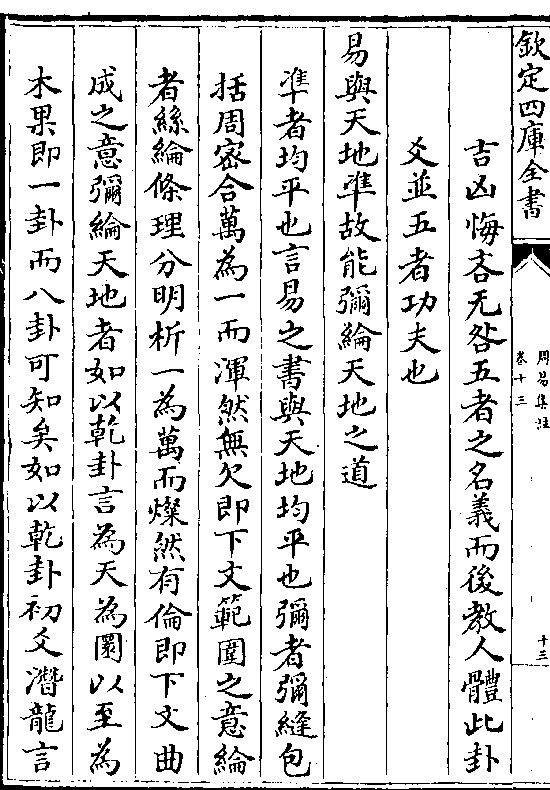 欽定四庫全書
周易集註
卷十三
十三
吉凶悔吝无咎五者之名義而後教人體此卦
爻並五者功夫也
易與天地準故能彌綸天地之道
準者均平也言易之書與天地均平也彌者彌縫包
括周宻合萬為一而渾然無欠即下文範圍之意綸
者絲綸條理分明析一為萬而燦然有倫即下文曲
成之意彌綸天地者如以乾卦言為天為圜以至為
木果即一卦而八卦可知矣如以乾卦初爻潛龍言